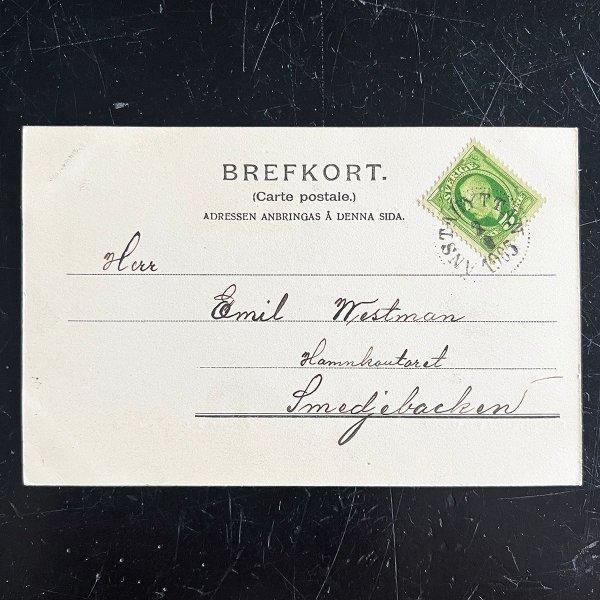 BREFKORT.
(Carte postale.)
ADRESSEN ANBRINGAS Å DENNA SIDA.
SVERIGE
1905
Herr
Emil Westman
Hamnkontoret
Smedjebacken